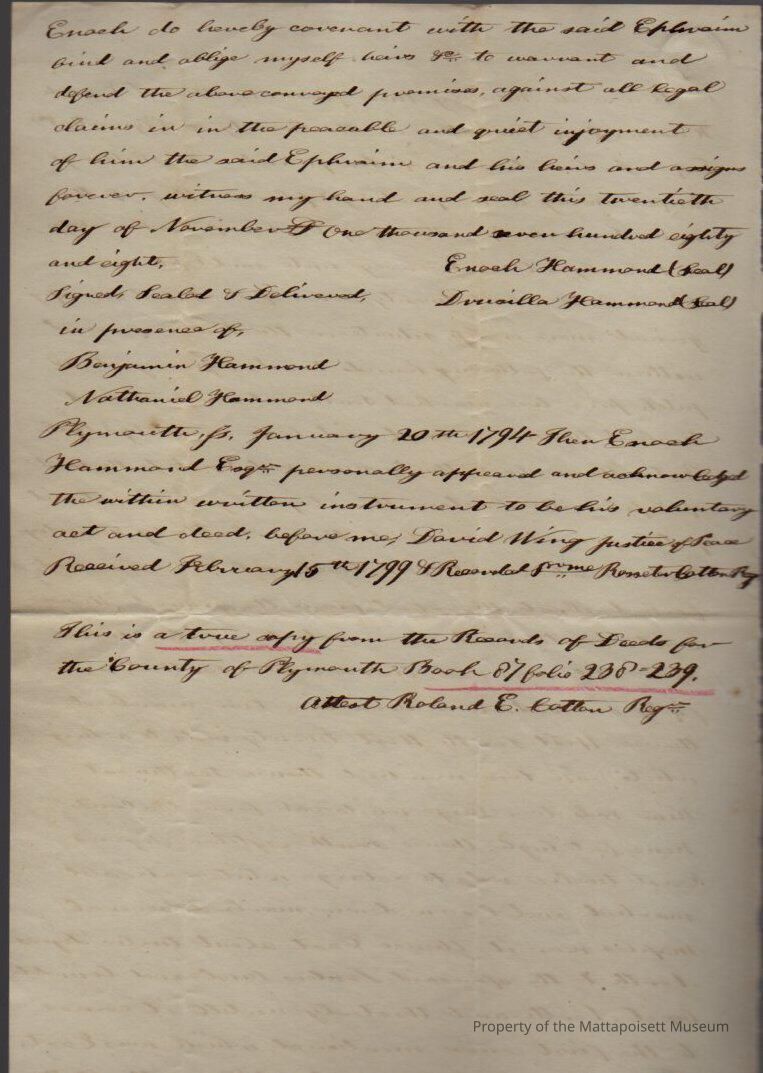 Enoch do hereby covenant with the said Ephraim
bind and oblige myself heirs &c. to warrant and
defend the above conveyed premises, against all legal
claims in in the peacable and quiet injoyment
of him the said Ephraim and his heirs and assigns
forever. witness my hand and seal this twentieth
day of November One thousand seven hundred eighty
and eight.
Enoch Hammond (Seal)
Signed, Sealed & Delivered,
Druscilla Hammond (Seal)
in presence of,
Benjamin Hammond
Nathaniel Hammond
Plymouth, Ss. January 20th 1794 Then Enoch
Hammond Esqr. personally appeared and acknowledged
the within written instrument to be his voluntary
act and deed. before me, David Wing Justice of Peace
Received February 15th 1799 & Recorded Rosseter Cotton Reg
This is a true copy from the Records of Deeds for
the County of Plymouth Book 87 folio 238-239.
Attest Roland E. Cotton Regr.
Property of the Mattapoisett Museum